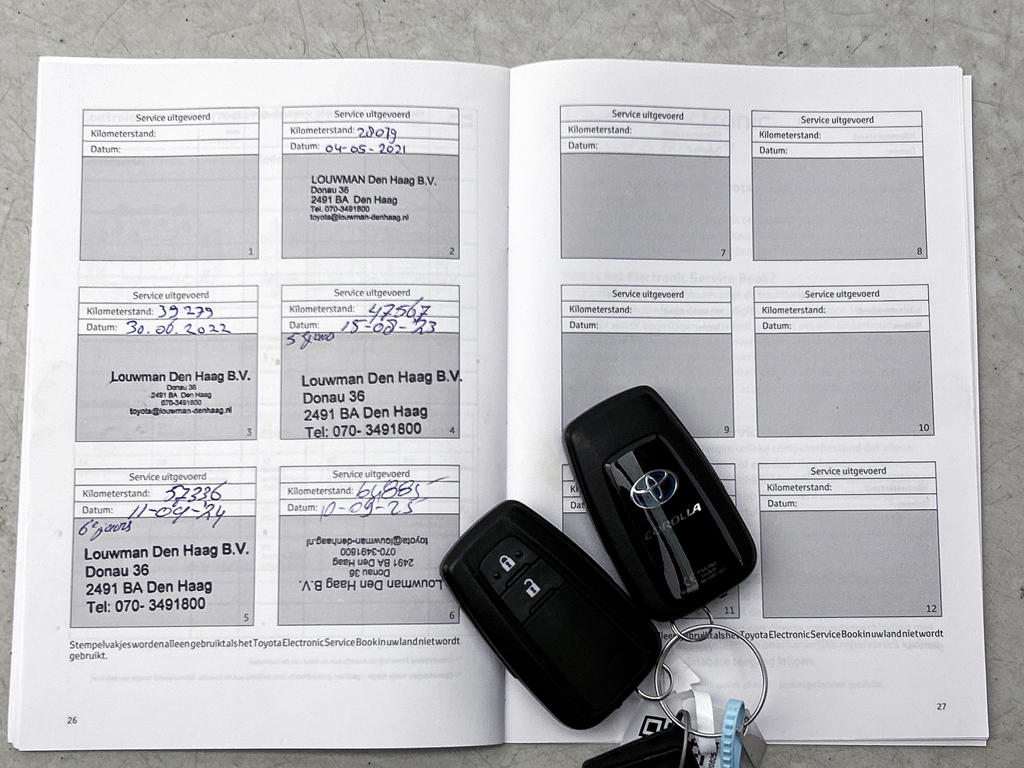 Service uitgevoerd
Kilometerstand:
Datum:
1
Service uitgevoerd
Kilometerstand: 28079
Datum: 04-05-2021
LOUWMAN Den Haag B.V.
Donau 36
2491 BA Den Haag
Tel. 070-3491800
toyota@louwman-denhaag.nl
2
Service uitgevoerd
Kilometerstand: 39279
Datum: 30.06.2022
Louwman Den Haag B.V.
Donau 36
2491 BA Den Haag
070-3491800
toyota@louwman-denhaag.nl
3
Service uitgevoerd
Kilometerstand: 47567
Datum: 15-08-'23
Louwman Den Haag B.V.
Donau 36
2491 BA Den Haag
Tel: 070- 3491800
4
Service uitgevoerd
Kilometerstand: 57336
Datum: 11-09-'24
Louwman Den Haag B.V.
Donau 36
2491 BA Den Haag
Tel: 070- 3491800
5
Service uitgevoerd
Kilometerstand: 64885
Datum: 10-09-25
Louwman Den Haag B.V.
Donau 36
2491 BA Den Haag
070-3491800
toyota@louwman-denhaag.nl
6
Stempelvakjes worden alleen gebruikt als het Toyota Electronic Service Book in uw land niet wordt
gebruikt.
26
Service uitgevoerd
Kilometerstand:
Datum:
7
Service uitgevoerd
Kilometerstand:
Datum:
8
Service uitgevoerd
Kilometerstand:
Datum:
9
Service uitgevoerd
Kilometerstand:
Datum:
10
11
Service uitgevoerd
Kilometerstand:
Datum:
12
gebruikt als het Toyota Electronic Service Book in uw land niet wordt
27
COROLLA